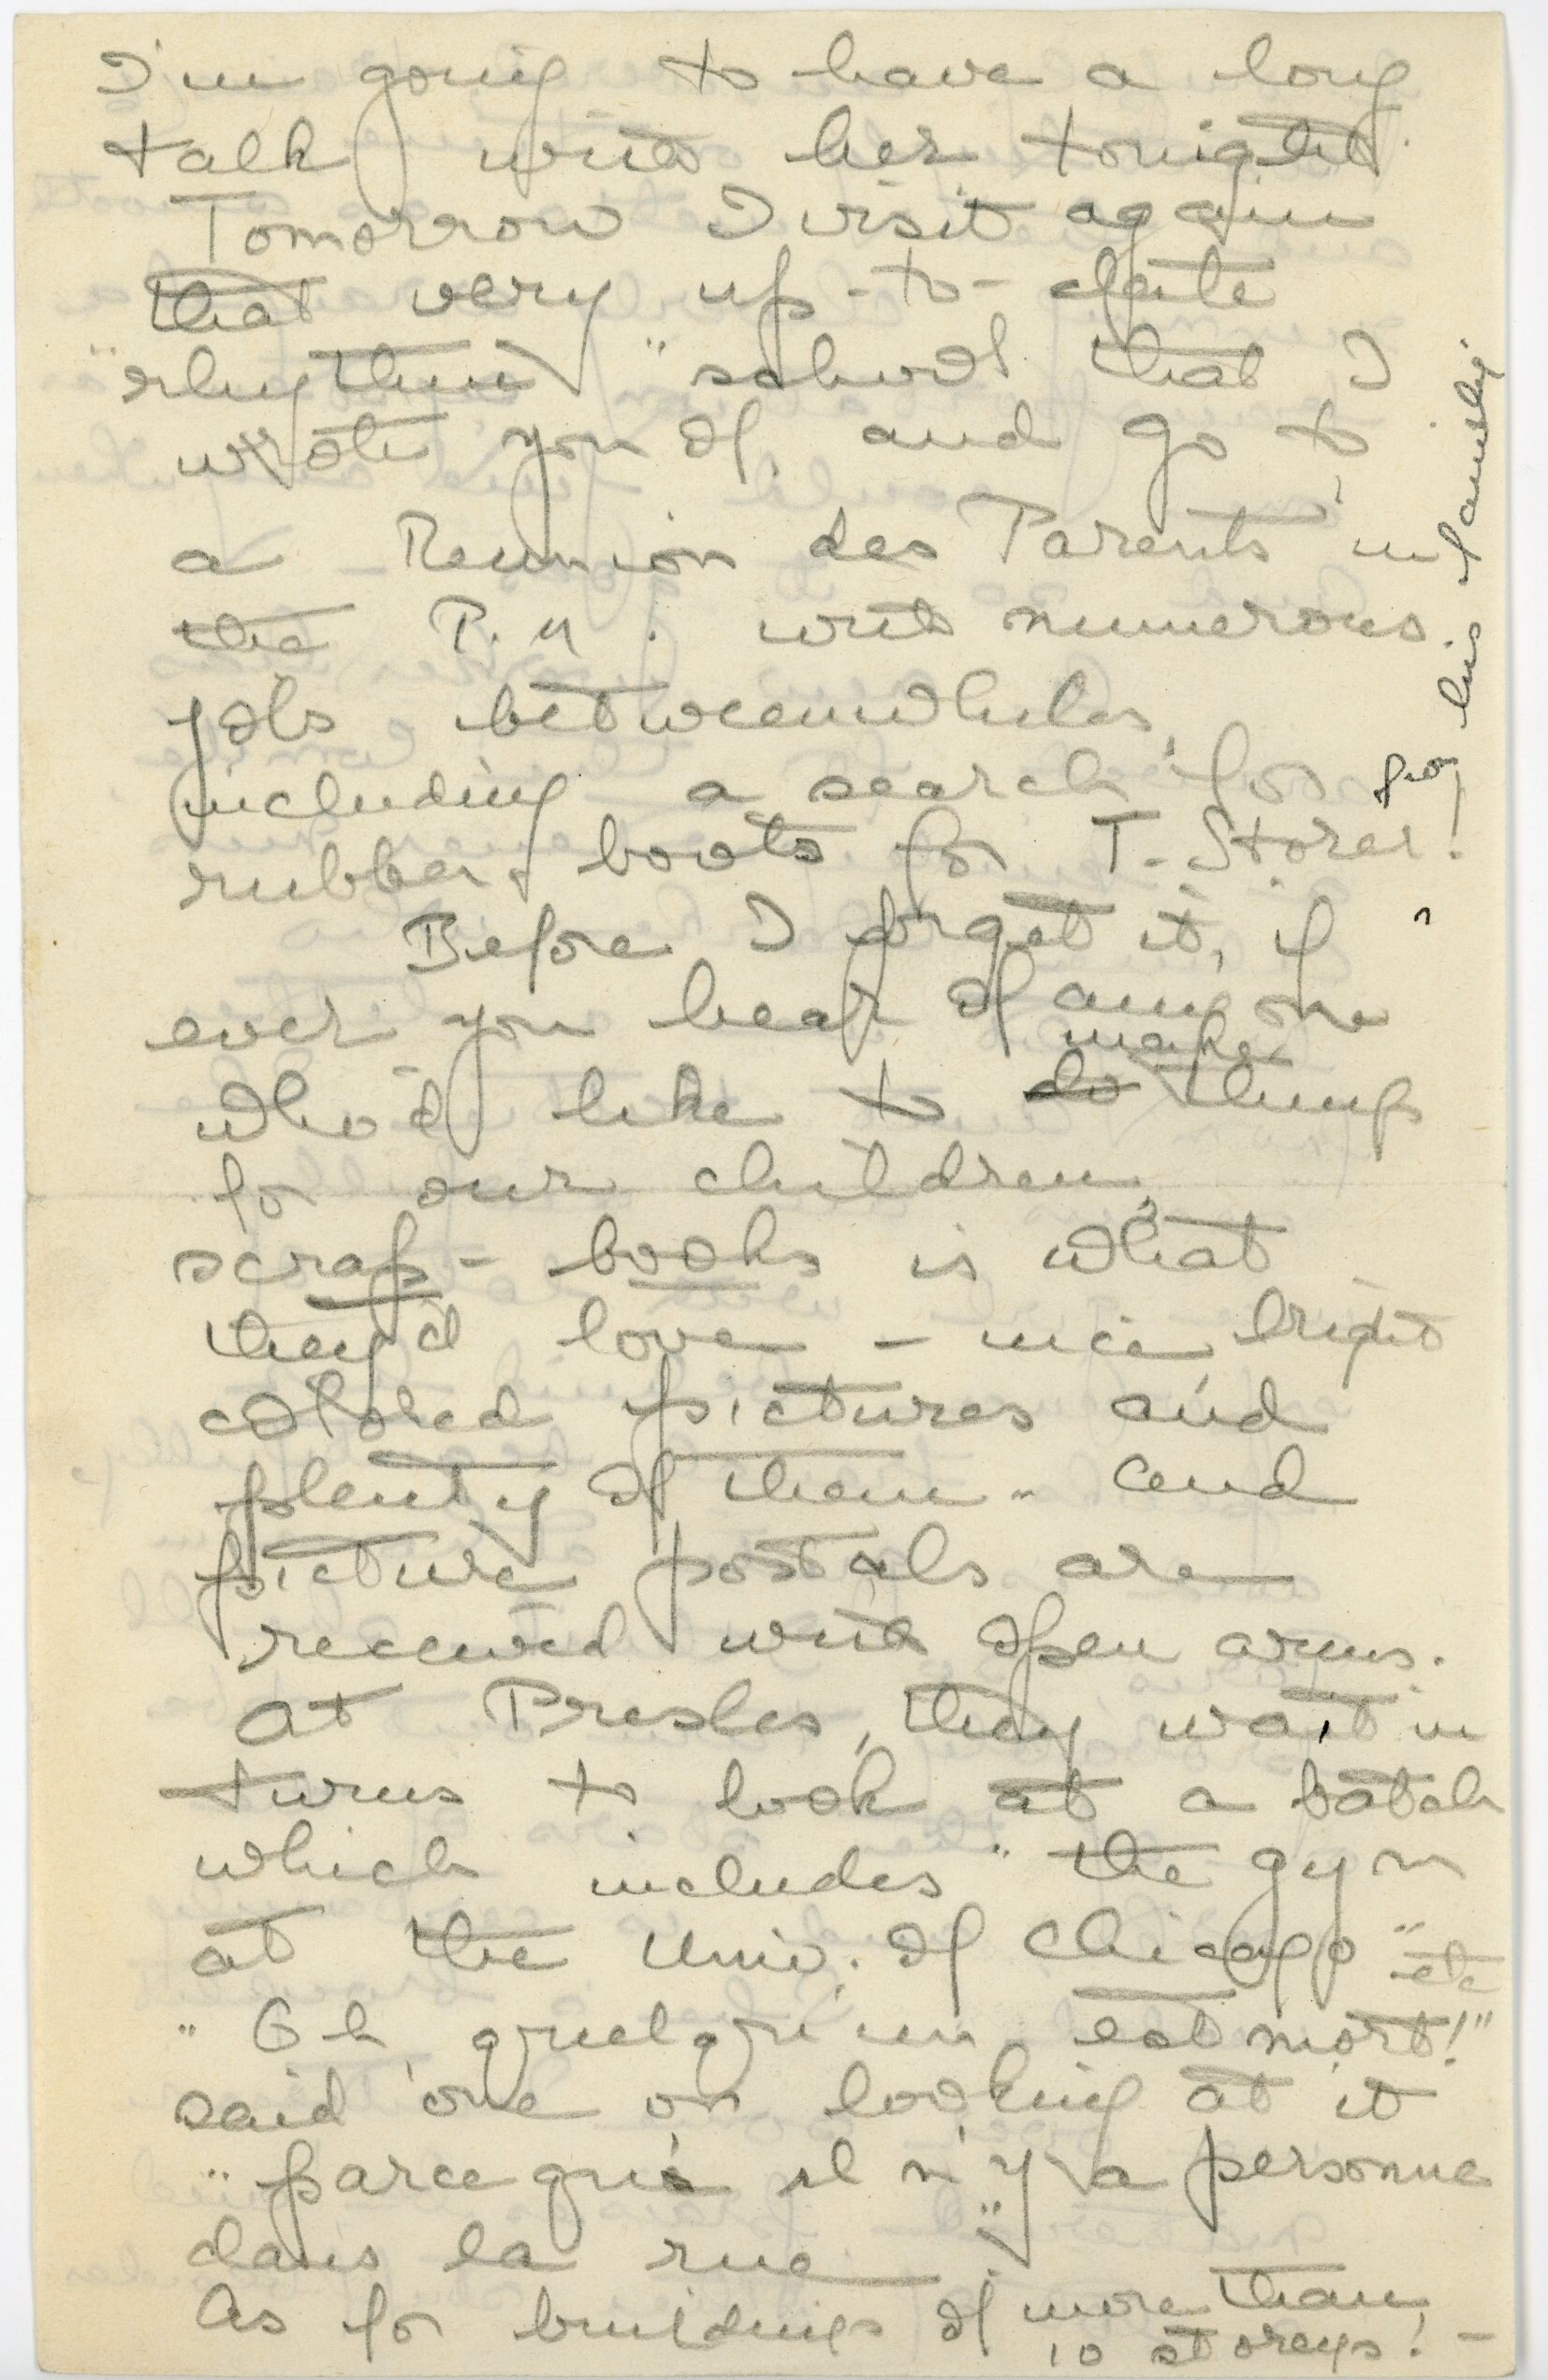 I'm going to have a long
talk with her tonight.
Tomorrow I visit again
that very up-to-date
"rhythm" school that I
wrote you of, and go to
a Reunion des Parents in
the P.M. with numerous
jobs betweenwhiles,
including a search for
rubber boots for T. Storer!
from his family
Before I forget it, if
ever you hear of any one
who'd like to do make things
for our children,
scrap-books is what
they'd love - nice bright
colored pictures and
plenty of them - and
picture postals are
received with open arms.
At Presles, they wait in
turns to look at a batch
which includes "the gym
at the Univ. of Chicago" etc
"Oh, quelqu'un est mort!"
said one on looking at it
"parce qu'il n'y a personne
dans la rue".
As for buildings of more than
10 storeys! -